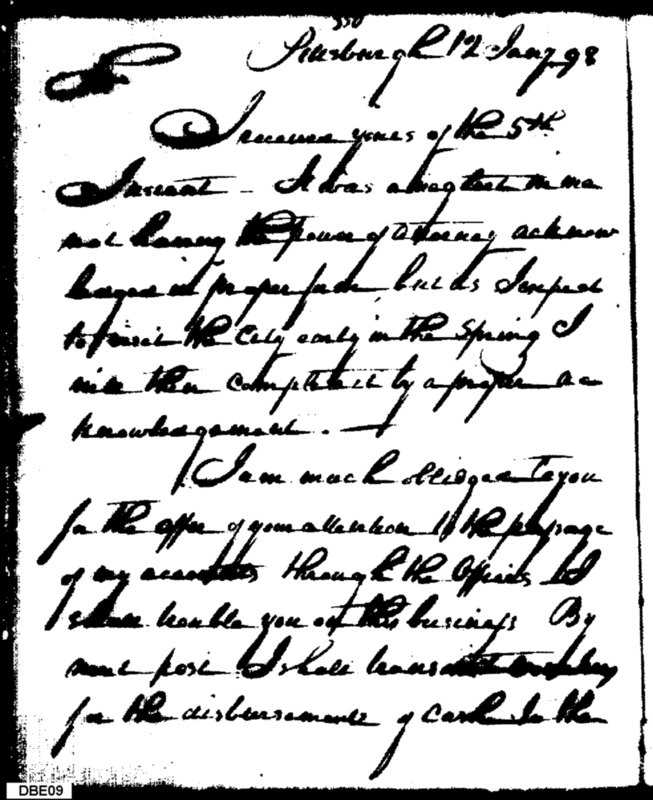 350
Pittsburgh 12 Jany 98
Sir
I received yours of the 5th
Instant - It was a neglect in me
not having the Power of Attorney acknow
ledged in proper form but as I expect
to visit the City early in the Spring I
will then complete it by a proper ac
knowledgement. —
I am much obliged to you
for the offer of your attention to the passage
of my accounts through the Offices & I
shall trouble you on this business By
next post I shall transmit vouchers
for the disbursements of Cash in the
DBE09